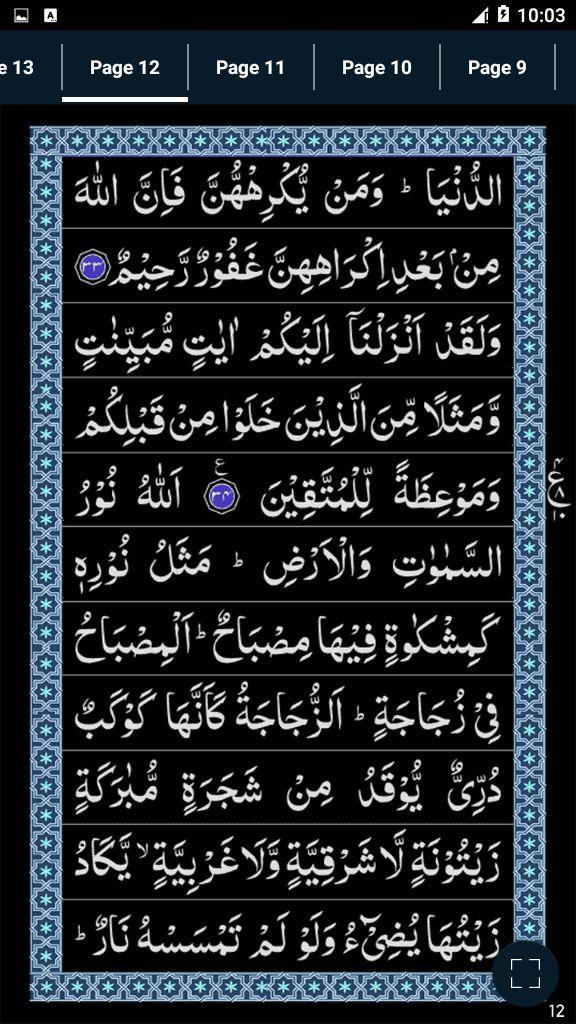 10:03
e 13 Page 12 Page 11 Page 10 Page 9
الدُّنْيَا ؕ وَمَنْ يُّكْرِهْهُّنَّ فَاِنَّ اللّٰهَ
مِنْۢ بَعْدِ اِكْرَاهِهِنَّ غَفُوْرٌ رَّحِيْمٌ ۳۳
وَلَقَدْ اَنْزَلْنَاۤ اِلَيْكُمْ اٰيٰتٍ مُّبَيِّنٰتٍ
وَّمَثَلًا مِّنَ الَّذِيْنَ خَلَوْا مِنْ قَبْلِكُمْ
وَمَوْعِظَةً لِّلْمُتَّقِيْنَ ۳۴ اَللّٰهُ نُوْرُ
السَّمٰوٰتِ وَالْاَرْضِ ؕ مَثَلُ نُوْرِهٖ
كَمِشْكٰوةٍ فِيْهَا مِصْبَاحٌ ؕ اَلْمِصْبَاحُ
فِيْ زُجَاجَةٍ ؕ اَلزُّجَاجَةُ كَاَنَّهَا كَوْكَبٌ
دُرِّيٌّ يُّوْقَدُ مِنْ شَجَرَةٍ مُّبٰرَكَةٍ
زَيْتُوْنَةٍ لَّا شَرْقِيَّةٍ وَّلَا غَرْبِيَّةٍ ۙ يَّكَادُ
زَيْتُهَا يُضِيْٓءُ وَلَوْ لَمْ تَمْسَسْهُ نَارٌ ؕ
12